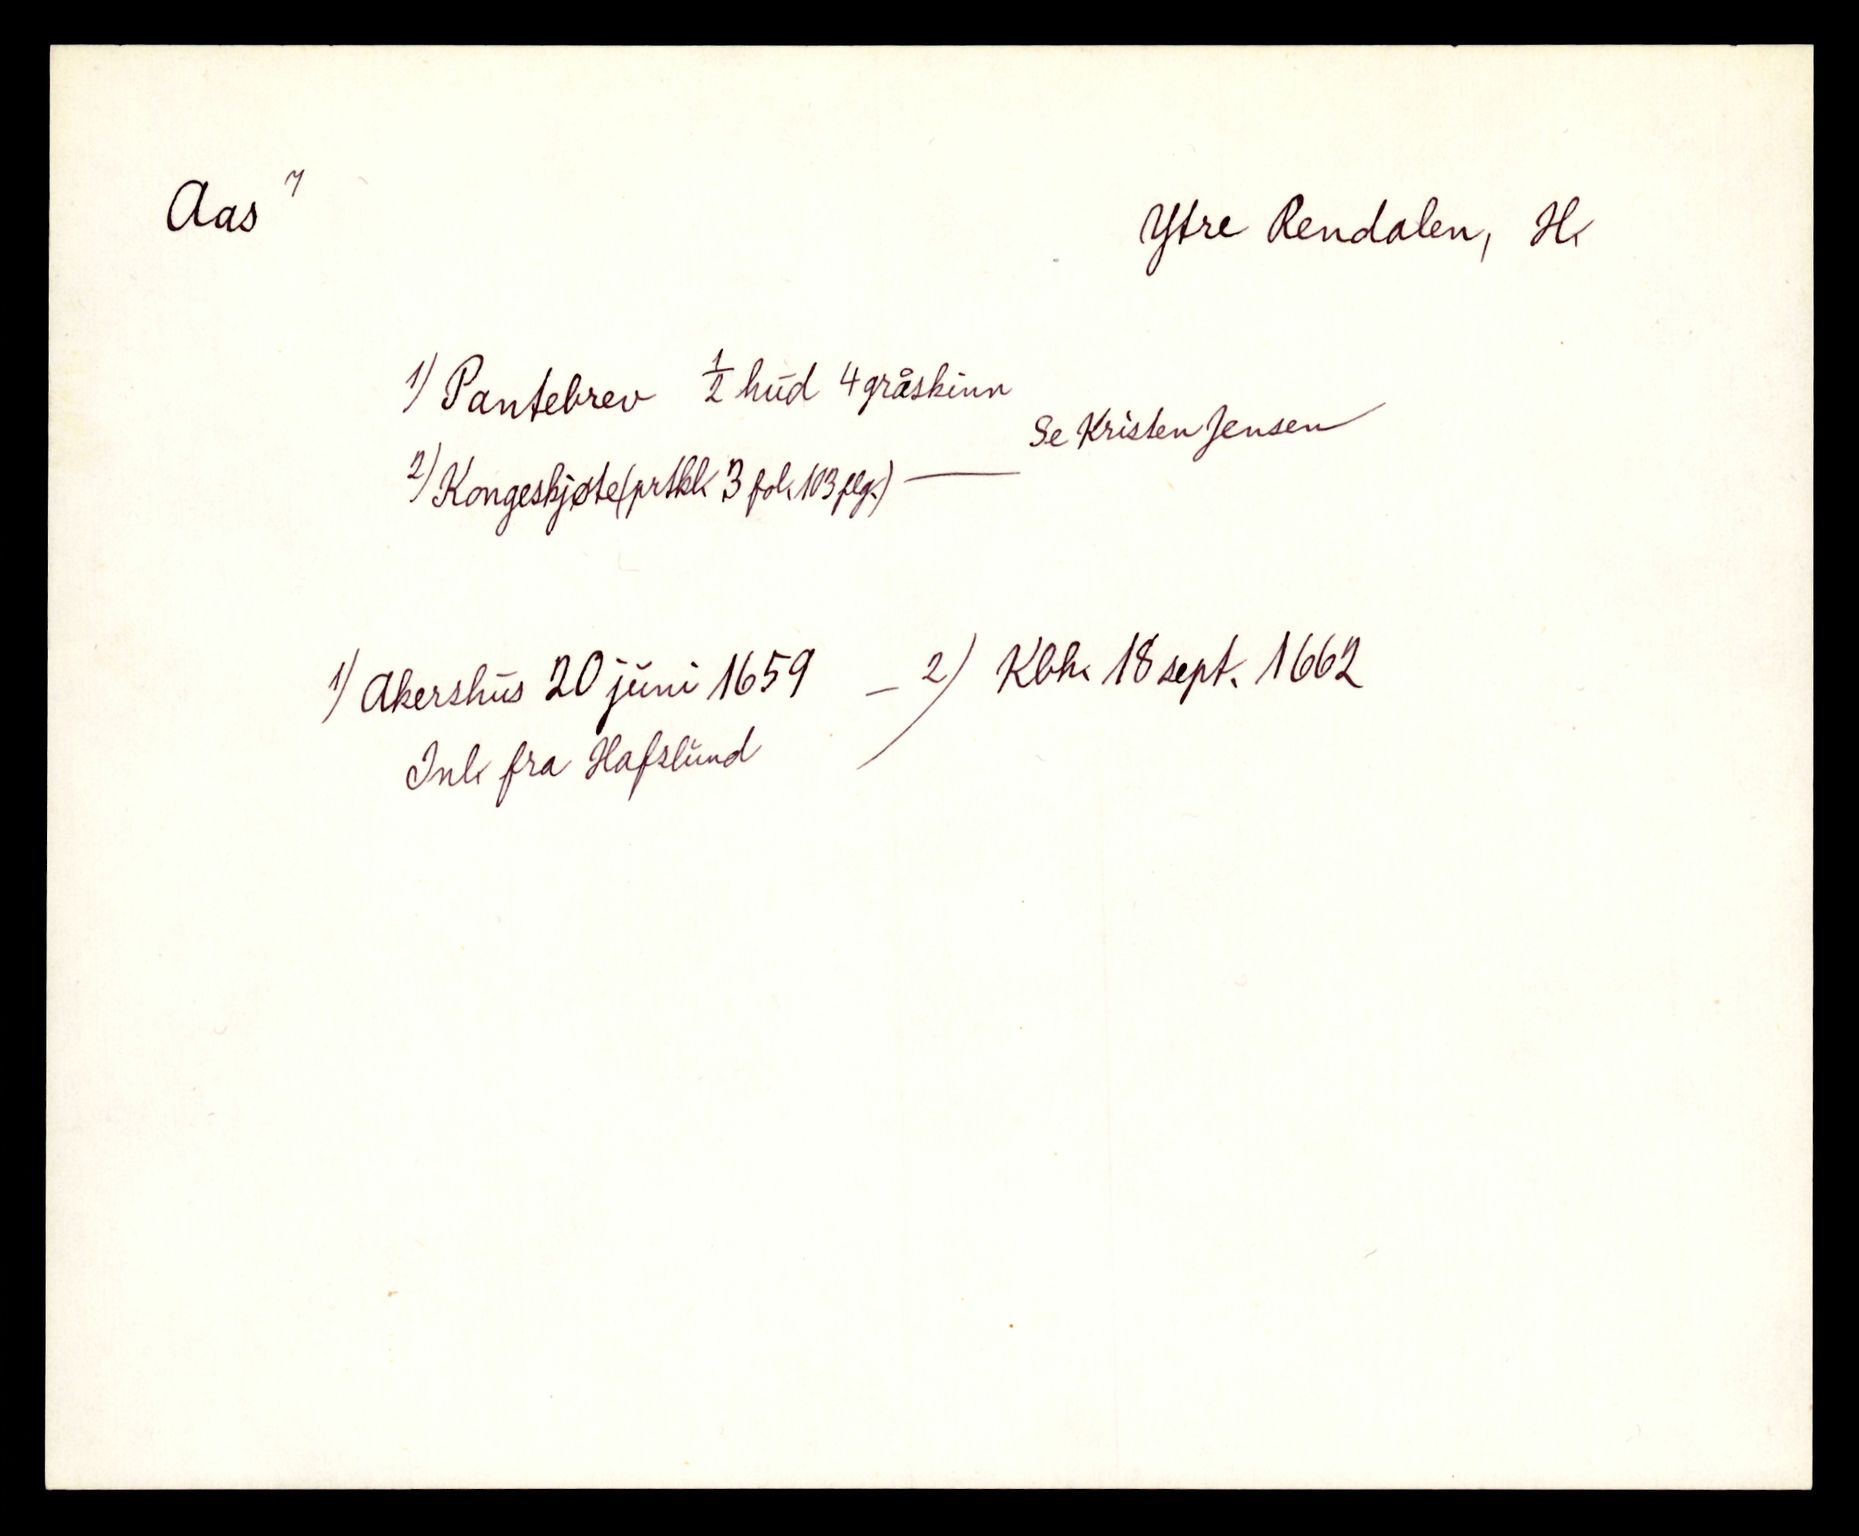 Aas 7
Ytre Rendalen, H.
1) Pantebrev ½ hud 4 gråskinn
Se Kristen Jensen
2) Kongeskjøte (prtkk. 3 fol. 103 flg.) —
1) Akershus 20 juni 1659 — 2) Kbh. 18 sept. 1662
Inl. fra Hafslund